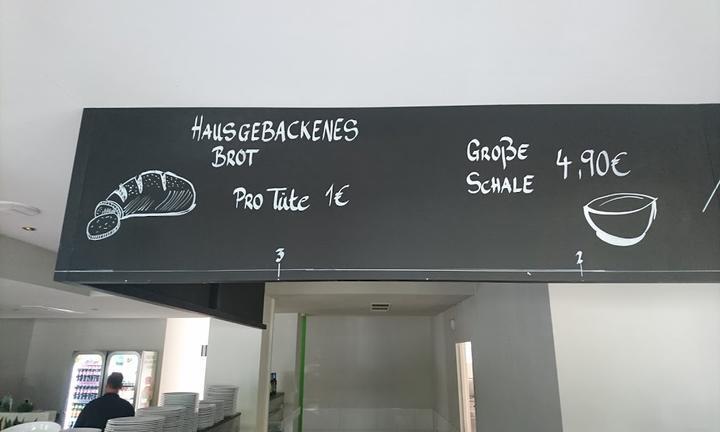 HAUSGEBACKENES
BROT
PRO Tüte 1€
GROßE
SCHALE
4,90€
3
2